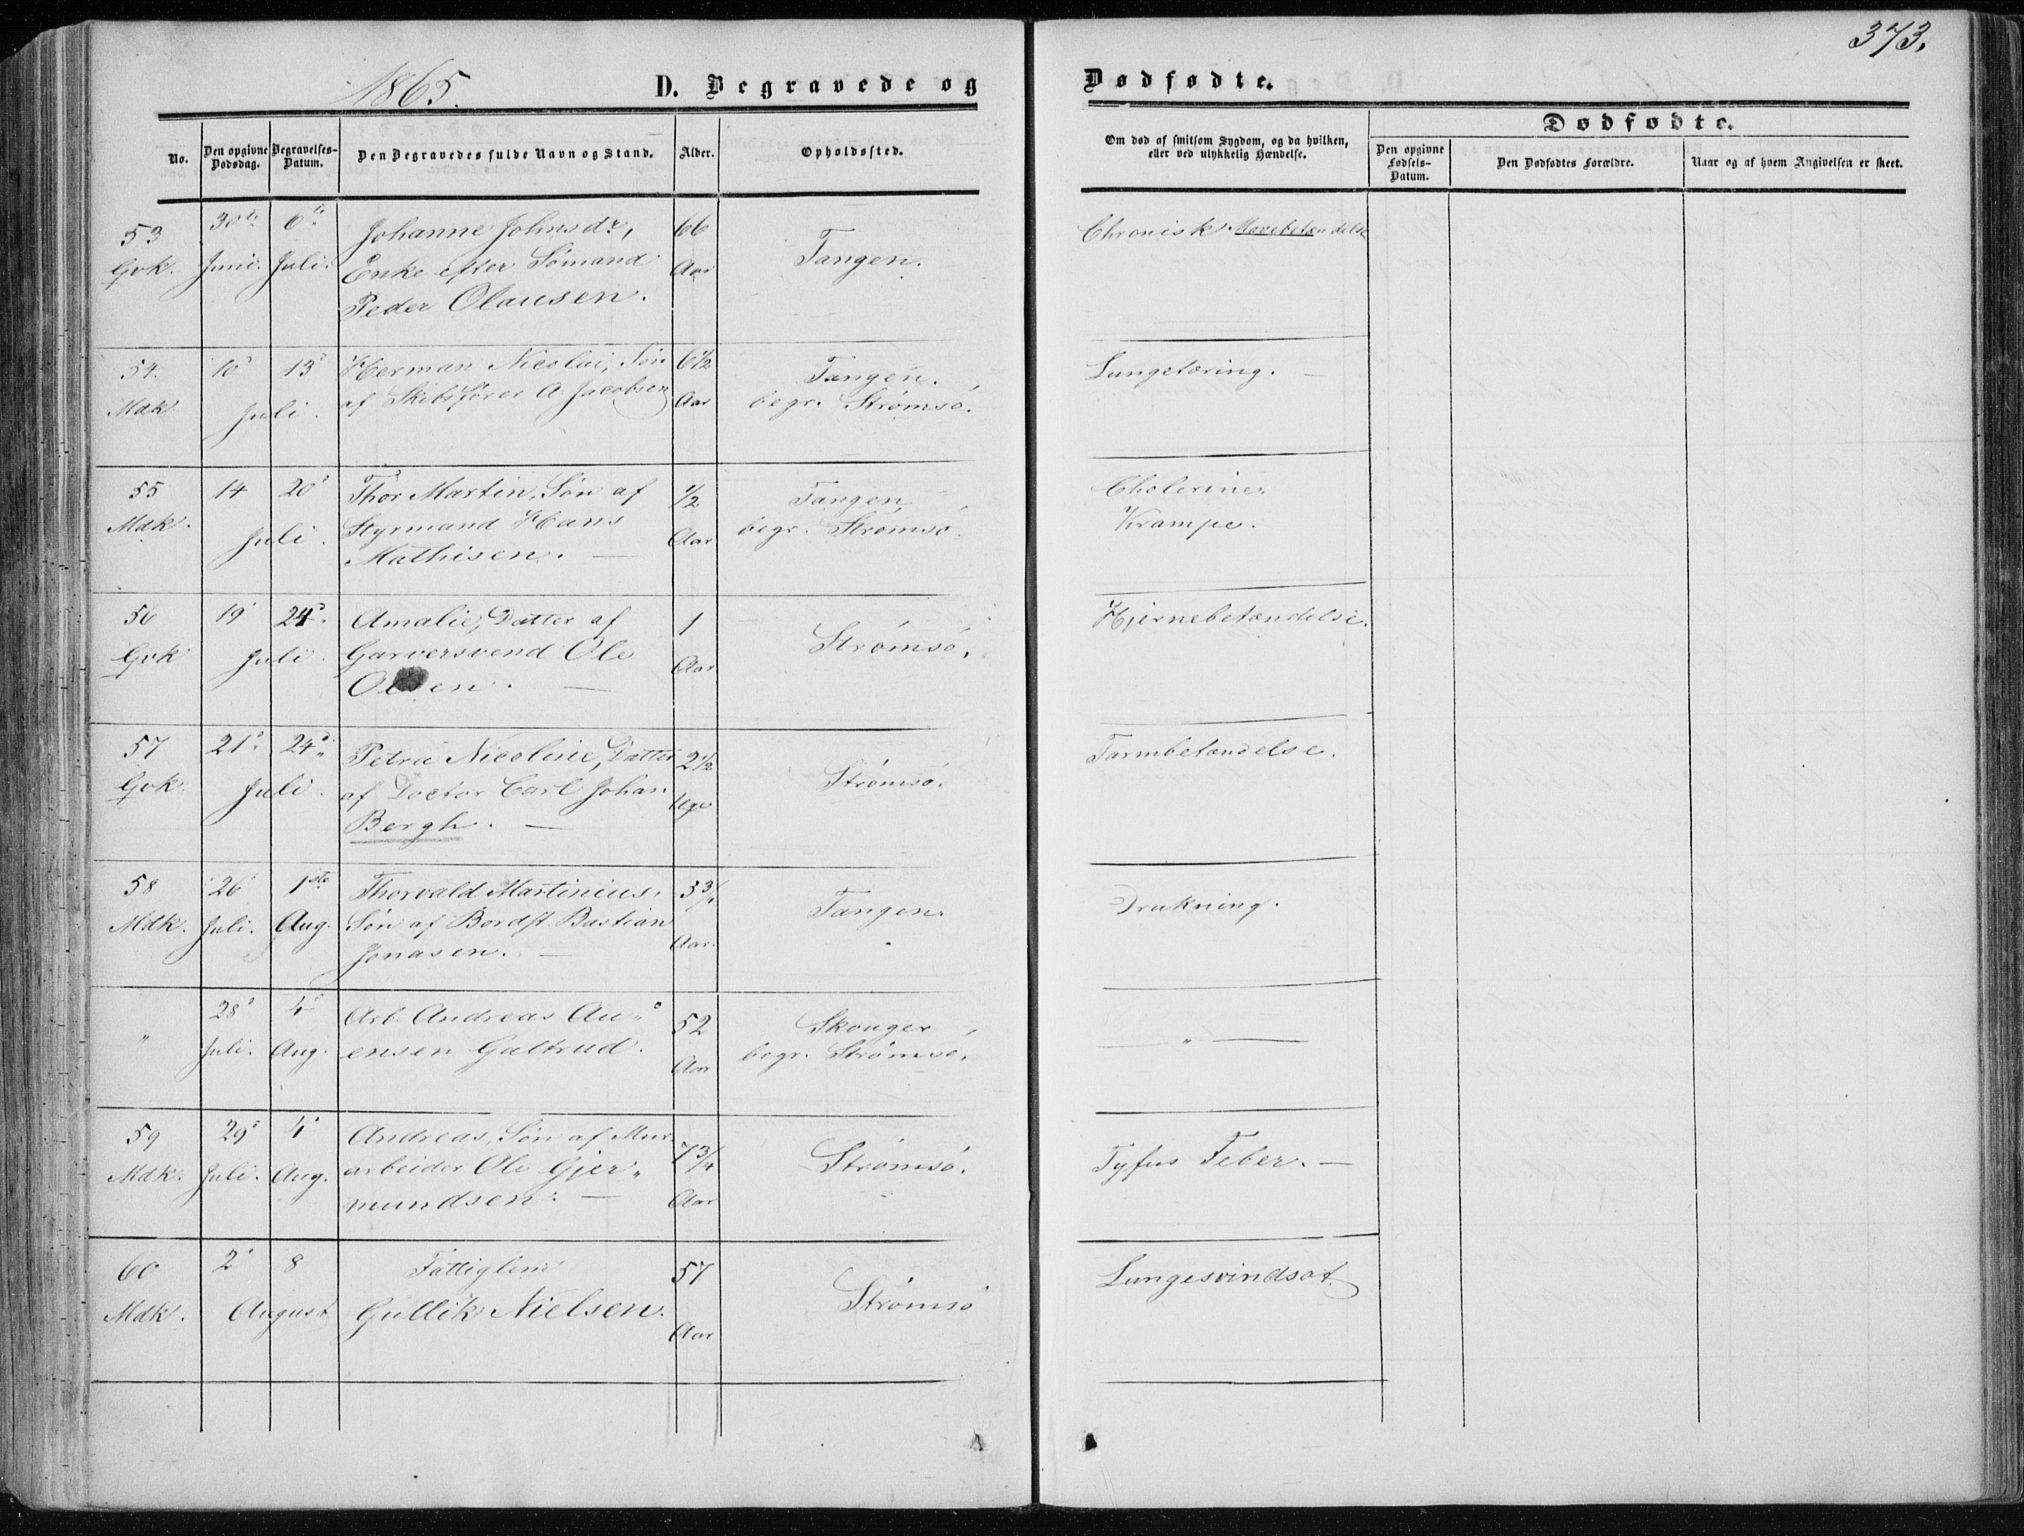 373.
1865.
D. Begravede og
Dødfødte.
No.
Den opgivne Dødsdag.
Begravelses-Datum.
Den Begravedes fulde Navn og Stand.
Alder.
Opholdssted.
Om død af smitsom Sygdom, og da hvilken, eller ved ulykkelig Hændelse.
Dødfødte.
Den opgivne Fødsels-Datum.
Den Dødfødtes Forældre.
Naar og af hvem Angivelsen er skeet.
53 30te 6te Johanne Johnsdr, 66 Tangen. Chronisk Mavebetændelse
Gvk. Juni. Juli. Enke efter Sømand Aar
Peder Olausen.
54. 10 13 Herman Nicolai, Søn 6 1/2 Tangen. Lungetæring.
Mdk. Juli. af Skibsfører A Jacobsen Aar begr. Strømsø.
55 14 20 Thor Martin, Søn af 1/2 Tangen, Cholerine.
Mdk. Juli. Styrmand Hans Aar begr. Strømsø. Krampe.
Mathisen. —
56 19 24 Amalie, Datter af 1 Strømsø. Hjernebetændelse.
Gvk Juli. Garversvend Ole Aar
Olsen. —
57 21 24 Petra Nicoline, Datter 2 1/2 Strømsø. Tarmbetændelse.
Gvk. Juli. af Doctor Carl Johan Uge
Bergh. —
58 26 1ste Thorvald Martinius, 3 3/4 Tangen. Drukning.
Mdk. Juli. Aug. Søn af Bordst. Bastian Aar.
Jonasen. —
" 28 4 Arb. Andreas An- 52 Skouger — " —
Juli. Aug. ensen Galtrud. Aar begr. Strømsø.
59 29 4 Andreas, Søn af Mur- 7 3/4 Strømsø. Tyfus Feber. —
Mdk. Juli. Aug. arbeider Ole Gjer- Aar
mundsen. —
60 2 8 Fattiglem 57 Strømsø Lungesvindsot.
Mdk. August Gullik Nielsen. Aar